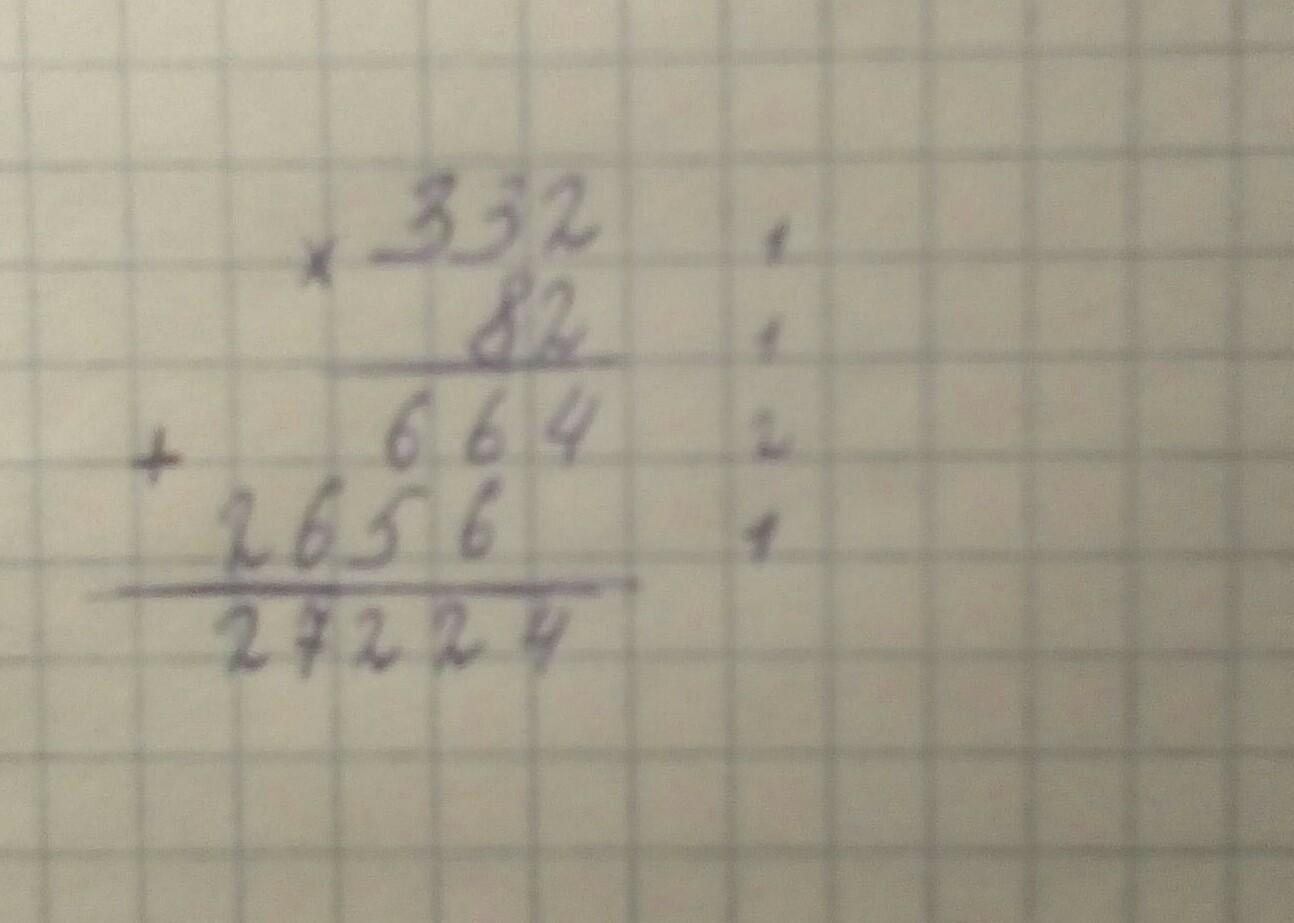 × 332 1
82 1
+ 664 2
2656 1
27224